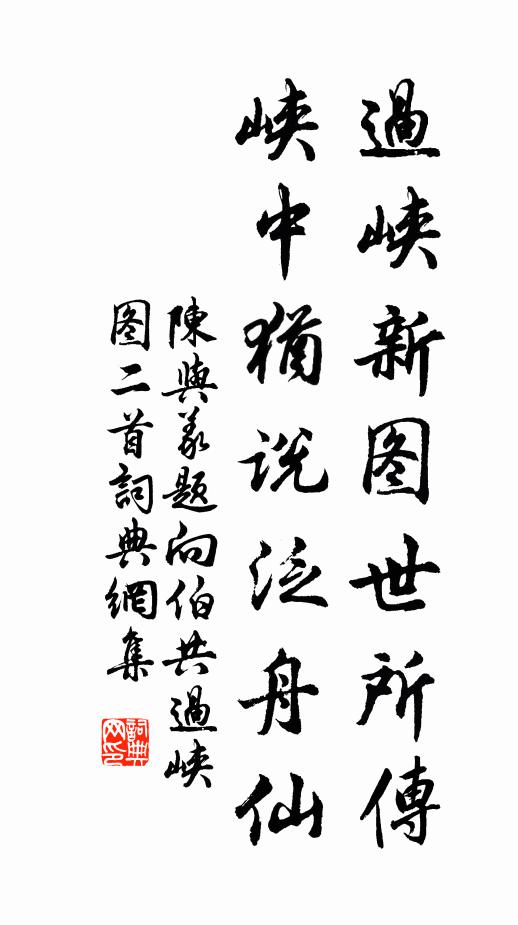 過峽新图世所傳
峽中猶說泛舟仙
陳與義題向伯共過峽
图二首詞典網集
詞典
网印